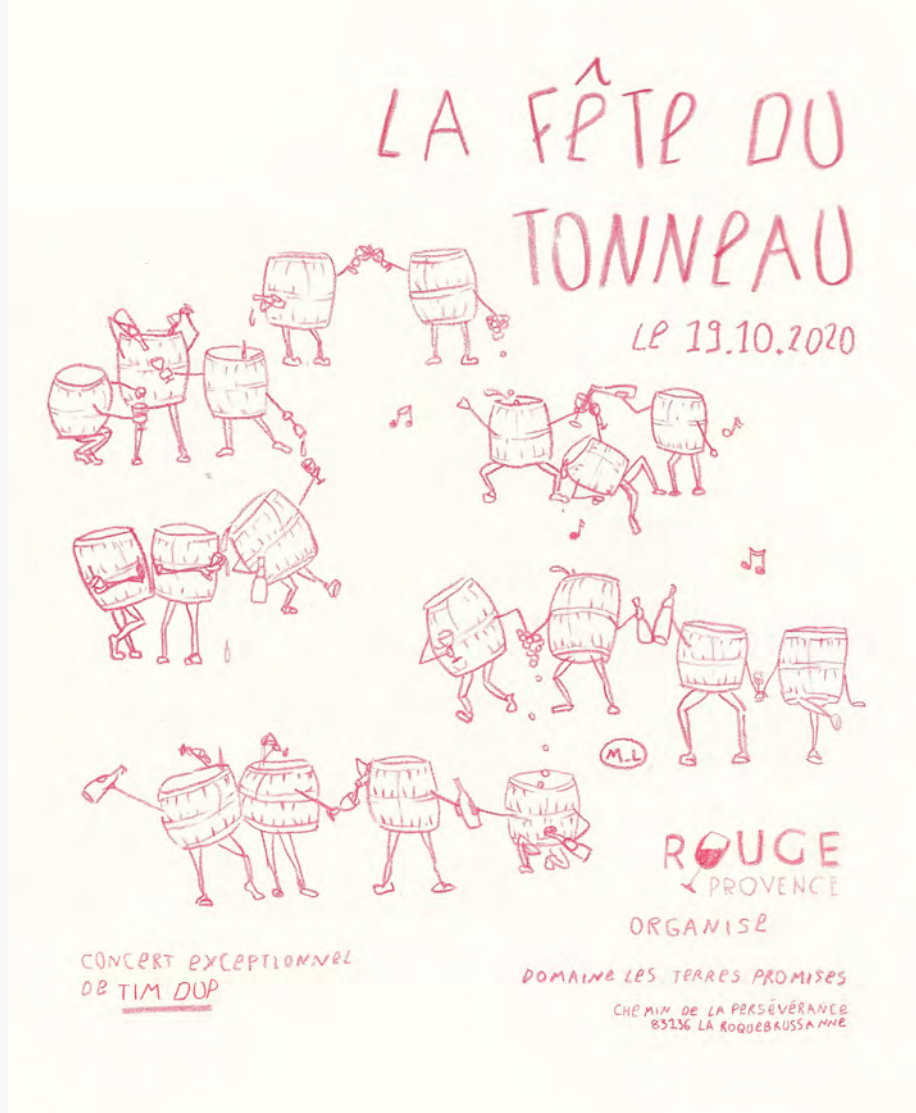 LA FÊTE DU
TONNEAU
LE 19.10.2020
M_L
ROUGE
PROVENCE
ORGANISE
CONCERT EXCEPTIONNEL
DE TIM DUP
DOMAINE LES TERRES PROMISES
CHEMIN DE LA PERSÉVÉRANCE
83136 LA ROQUEBRUSSANNE